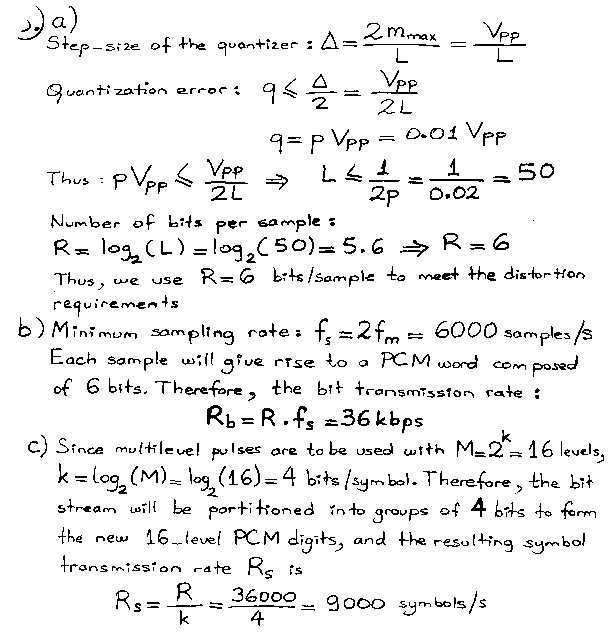 2.) a)
Step-size of the quantizer : Δ = 2 m_max / L = V_PP / L
Quantization error : q ≤ Δ / 2 = V_PP / 2L
q = p V_PP = 0.01 V_PP
Thus : p V_PP ≤ V_PP / 2L ⇒ L ≤ 1 / 2p = 1 / 0.02 = 50
Number of bits per sample :
R = log₂(L) = log₂(50) = 5.6 ⇒ R = 6
Thus, we use R=6 bits/sample to meet the distortion
requirements
b) Minimum sampling rate : f_s = 2f_m = 6000 samples/s
Each sample will give rise to a PCM word composed
of 6 bits. Therefore, the bit transmission rate :
R_b = R . f_s = 36 kbps
c) Since multilevel pulses are to be used with M=2^k=16 levels,
k = log₂(M) = log₂(16) = 4 bits/symbol. Therefore, the bit
stream will be partitioned into groups of 4 bits to form
the new 16-level PCM digits, and the resulting symbol
transmission rate R_s is
R_s = R / k = 36000 / 4 = 9000 symbols/s